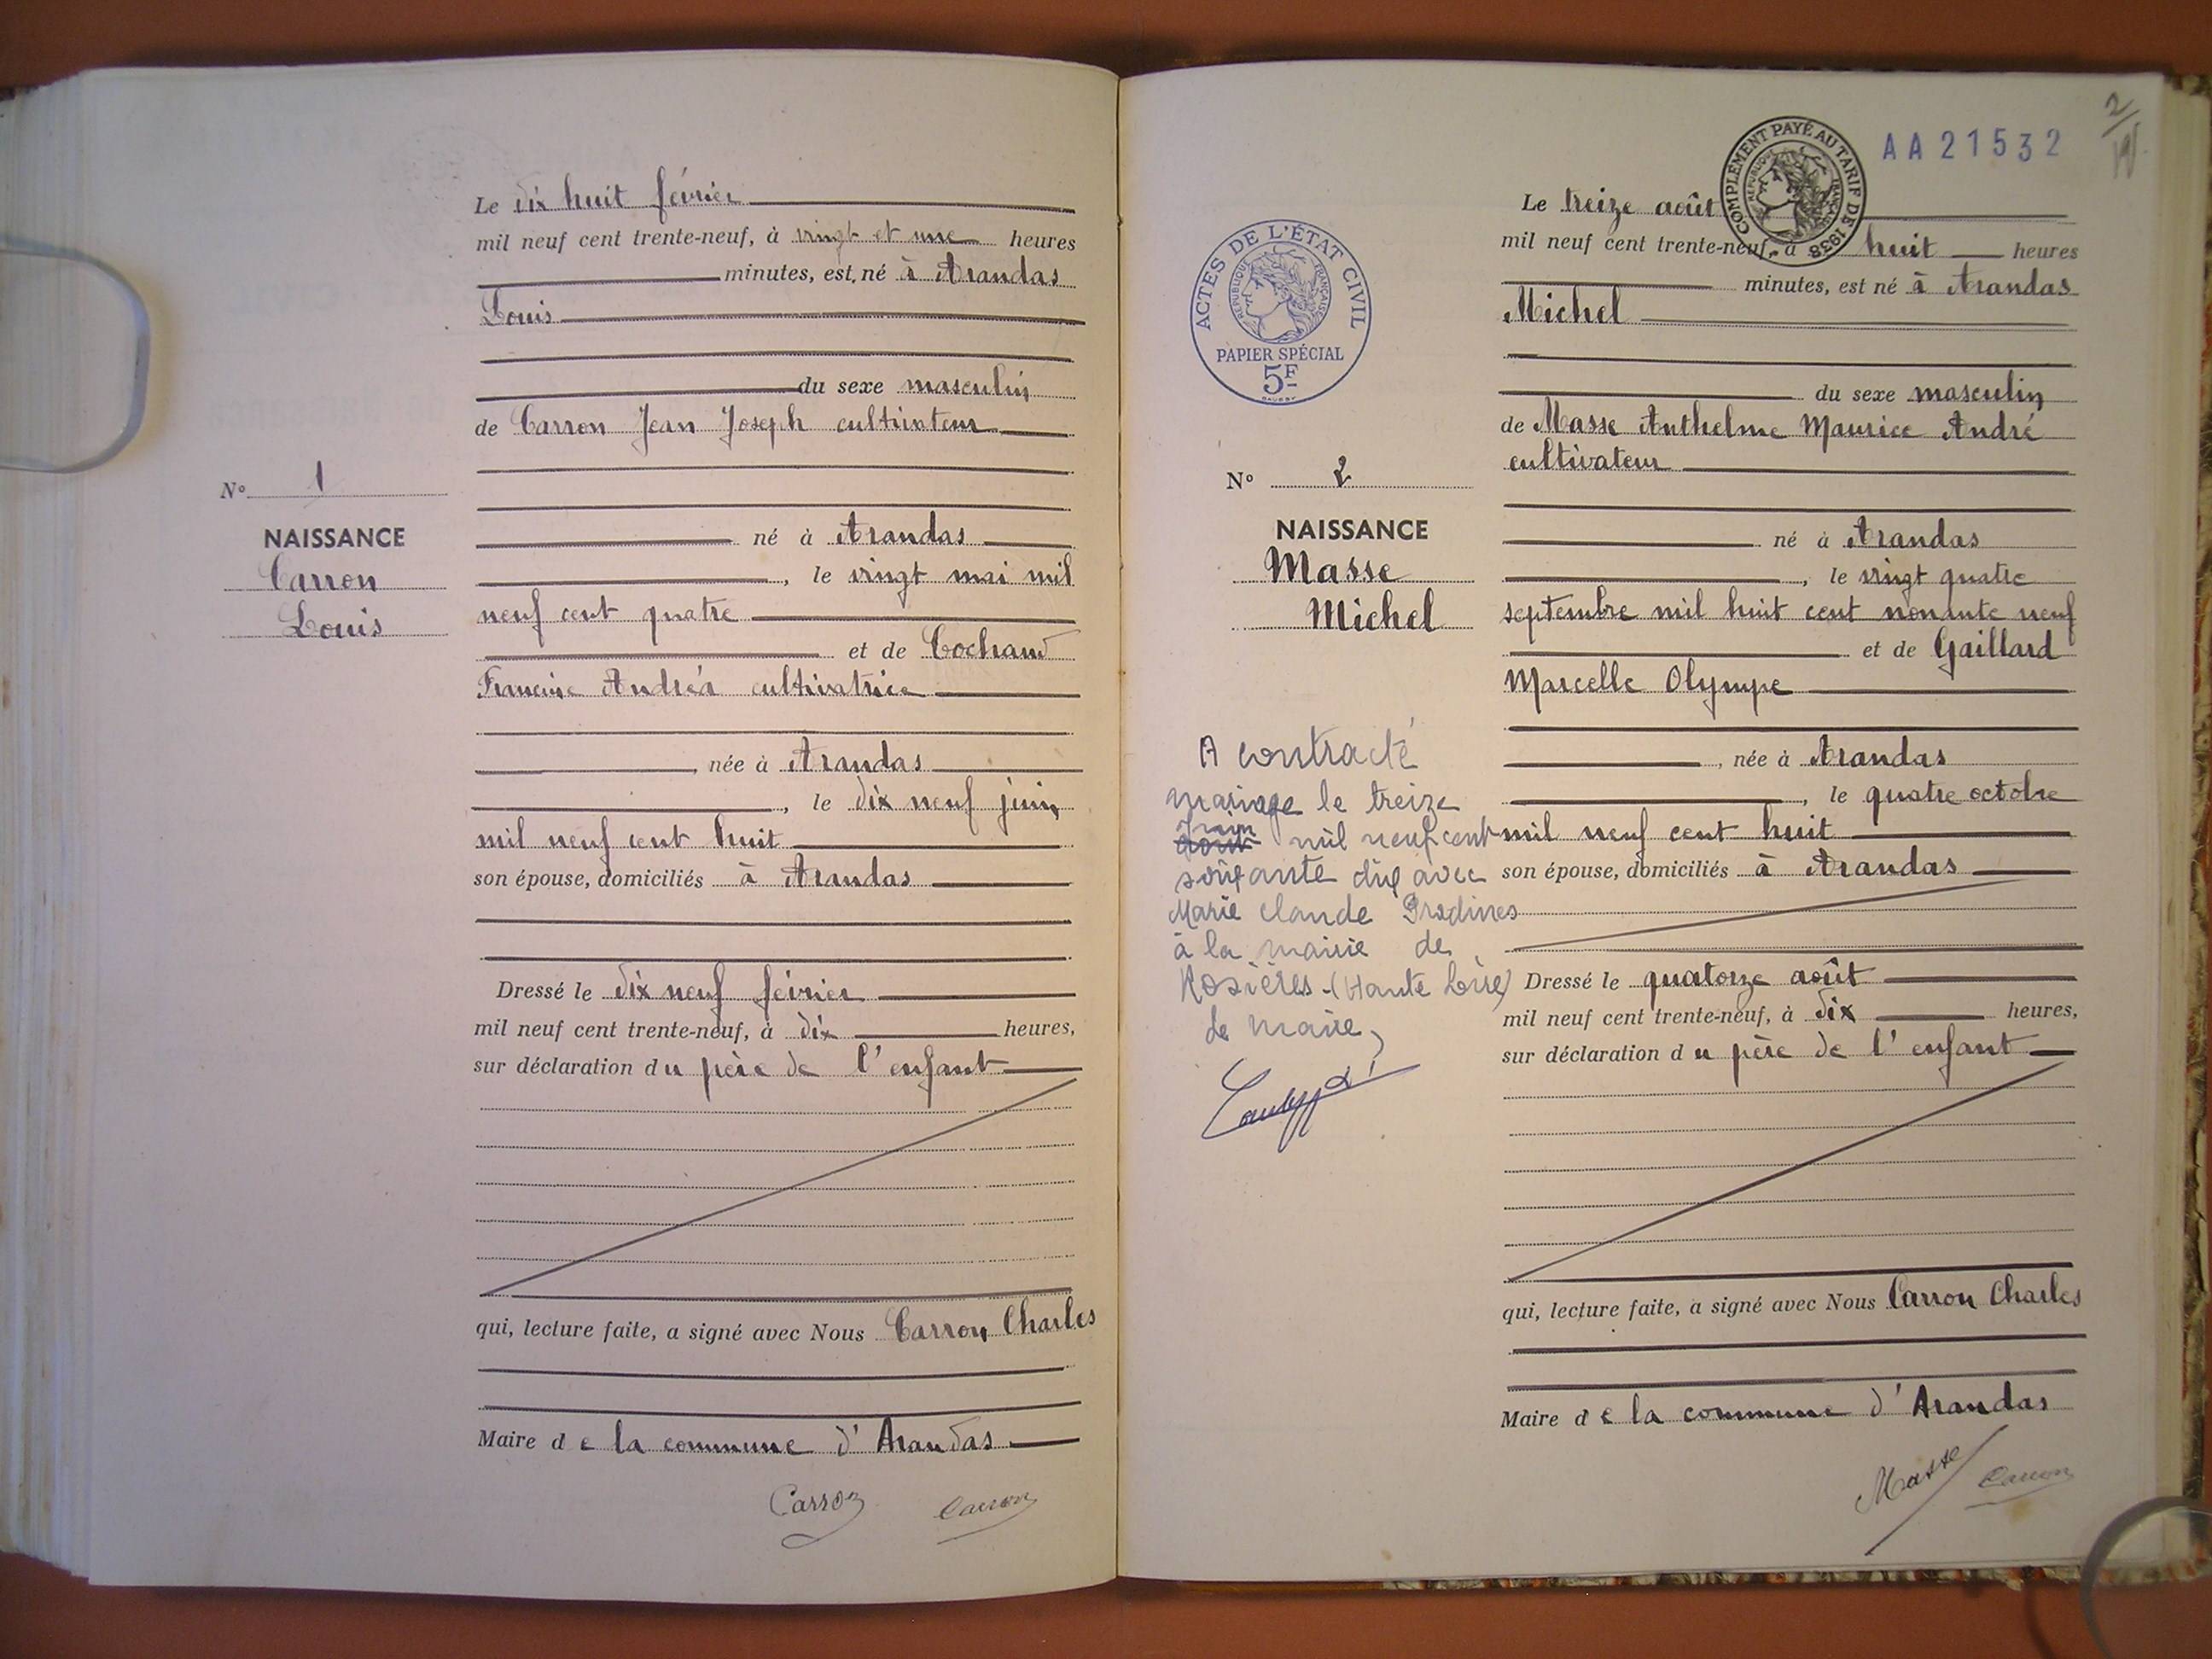 Le dix huit février
mil neuf cent trente-neuf, à vingt et une heures
minutes, est né à Arandas
Louis
du sexe masculin
de Carron Jean Joseph cultivateur
né à Arandas
, le vingt mai mil
neuf cent quatre
et de Cochand
Francine Andréa cultivatrice
, née à Arandas
, le dix neuf juin
mil neuf cent huit
son épouse, domiciliés à Arandas
Dressé le dix neuf février
mil neuf cent trente-neuf, à dix heures,
sur déclaration du père de l'enfant
qui, lecture faite, a signé avec Nous Carron Charles
Maire de la commune d'Arandas
Carron Carron
N° 1
NAISSANCE
Carron
Louis
2
AA21532
COMPLÉMENT PAYÉ AU TARIF DE 1938
RÉPUBLIQUE FRANÇAISE
ACTES DE L'ÉTAT CIVIL
RÉPUBLIQUE FRANÇAISE
PAPIER SPÉCIAL
5F
N° 2
NAISSANCE
Masse
Michel
A contracté
mariage le treize
juin
août mil neuf cent
soixante dix avec
Marie Claude Gradines
à la mairie de
Rosières (Haute Loire)
Le maire,
Le treize août
mil neuf cent trente-neuf, à huit heures
minutes, est né à Arandas
Michel
du sexe masculin
de Masse Anthelme Maurice André
cultivateur
né à Arandas
, le vingt quatre
septembre mil huit cent nonante neuf
et de Gaillard
Marcelle Olympe
, née à Arandas
, le quatre octobre
mil neuf cent huit
son épouse, domiciliés à Arandas
Dressé le quatorze août
mil neuf cent trente-neuf, à dix heures,
sur déclaration du père de l'enfant
qui, lecture faite, a signé avec Nous Carron Charles
Maire de la commune d'Arandas
Masse Carron